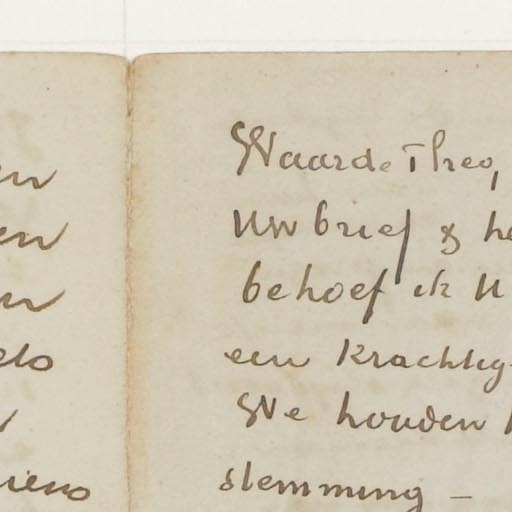 Waarde Theo,
Uw brief & he
behoef ik U
een krachtig
We houden
stemming –